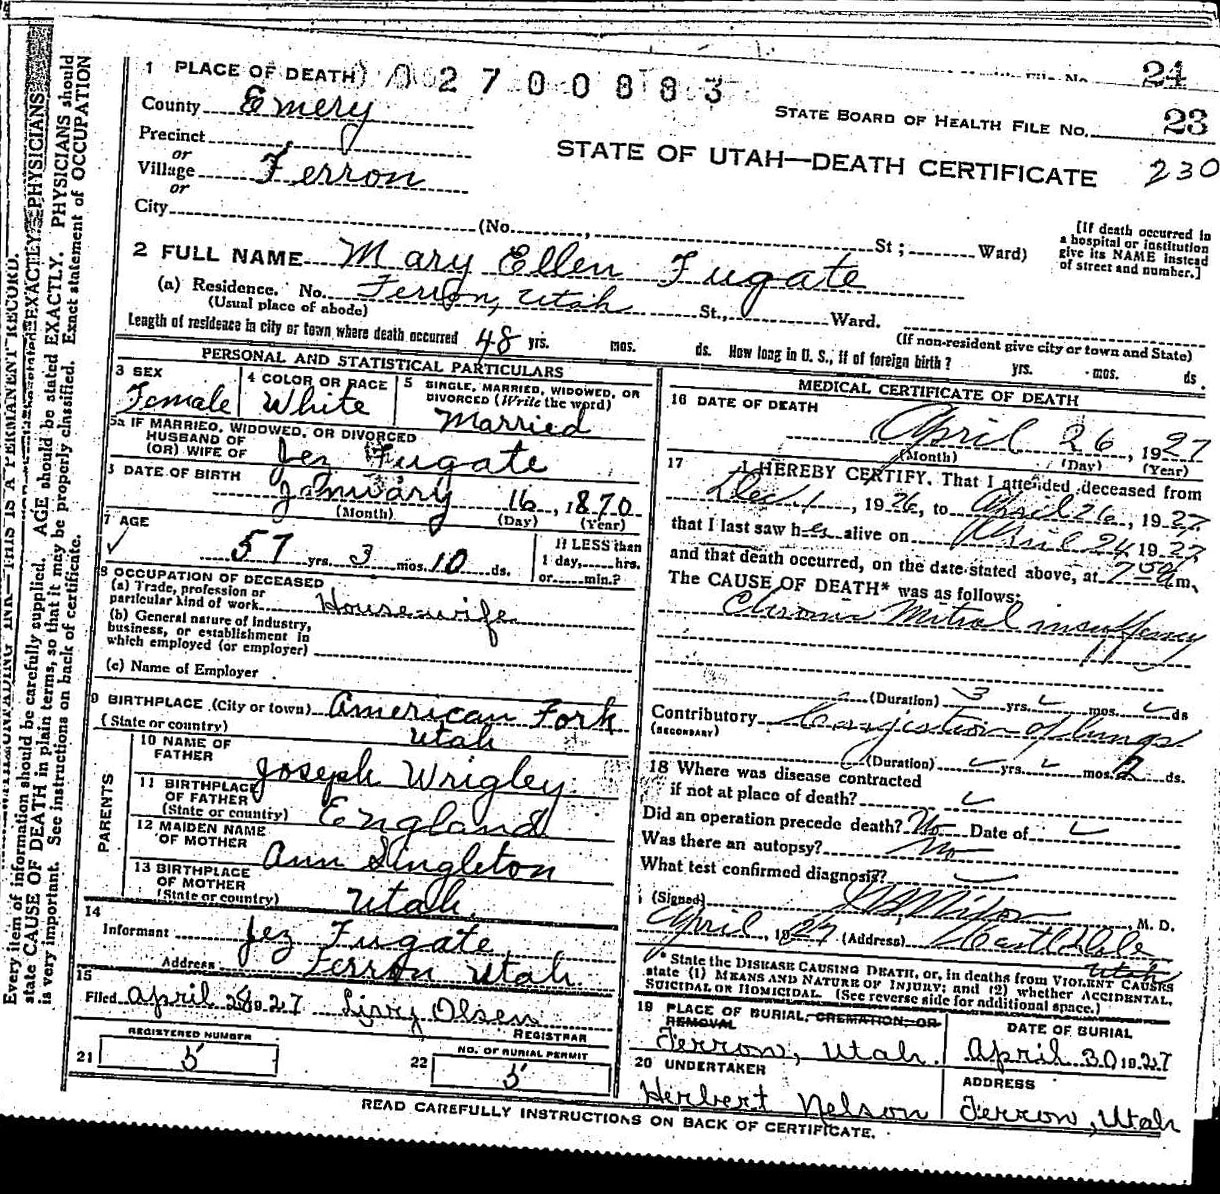 1 PLACE OF DEATH 02700883
File No. 24
County Emery
STATE BOARD OF HEALTH FILE NO. 23
Precinct
or
STATE OF UTAH—DEATH CERTIFICATE 230
Village Ferron
or
City (No. , St ; Ward)
[If death occurred in
a hospital or institution
give its NAME instead
of street and number.]
2 FULL NAME Mary Ellen Fugate
(a) Residence. No. Ferron, Utah St., Ward.
(Usual place of abode)
(If non-resident give city or town and State)
Length of residence in city or town where death occurred 48 yrs. mos. ds. How long in U. S., if of foreign birth ? yrs. mos. ds.
PERSONAL AND STATISTICAL PARTICULARS
3 SEX
Female
4 COLOR OR RACE
White
5 SINGLE, MARRIED, WIDOWED, OR
DIVORCED (Write the word)
Married
5a IF MARRIED, WIDOWED, OR DIVORCED
HUSBAND OF
(OR) WIFE OF Jez Fugate
DATE OF BIRTH
January 16, 1870
(Month) (Day) (Year)
7 AGE
57 yrs. 3 mos. 10 ds.
If LESS than
1 day, hrs.
or min.?
8 OCCUPATION OF DECEASED
(a) Trade, profession or
particular kind of work Housewife
(b) General nature of industry,
business, or establishment in
which employed (or employer)
(c) Name of Employer
9 BIRTHPLACE (City or town) American Fork
(State or country) Utah
PARENTS
10 NAME OF
FATHER Joseph Wrigley
11 BIRTHPLACE
OF FATHER
(State or country) England
12 MAIDEN NAME
OF MOTHER Ann Singleton
13 BIRTHPLACE
OF MOTHER
(State or country) Utah
14
Informant Jez Fugate
Address Ferron Utah.
15
Filed April 28 1927 Lizzy Olsen
REGISTRAR
REGISTERED NUMBER
21 5
NO. OF BURIAL PERMIT
22 5
MEDICAL CERTIFICATE OF DEATH
16 DATE OF DEATH
April 26, 1927
(Month) (Day) (Year)
17 I HEREBY CERTIFY, That I attended deceased from
Dec 1, 1926, to April 26, 1927
that I last saw her alive on April 24 1927
and that death occurred, on the date stated above, at 750am,
The CAUSE OF DEATH* was as follows:
Chronic Mitral insuffency
(Duration) 3 yrs. mos. ds
Contributory Congestion of lungs
(SECONDARY)
(Duration) yrs. mos. 2 ds.
18 Where was disease contracted
if not at place of death?
Did an operation precede death? No Date of
Was there an autopsy? No
What test confirmed diagnosis?
(Signed) J B Nixon M. D.
April, 1927 (Address) Castle Dale
Utah
* State the DISEASE CAUSING DEATH, or, in deaths from VIOLENT CAUSES
state (1) MEANS AND NATURE OF INJURY; and (2) whether ACCIDENTAL,
SUICIDAL OR HOMICIDAL. (See reverse side for additional space.)
19 PLACE OF BURIAL, CREMATION, OR
REMOVAL
Ferron, Utah.
DATE OF BURIAL
April 30 1927
20 UNDERTAKER
Herbert Nelson
ADDRESS
Ferron, Utah
READ CAREFULLY INSTRUCTIONS ON BACK OF CERTIFICATE.
THIS IS A PERMANENT RECORD.
Every item of information should be carefully supplied. AGE should be stated EXACTLY. PHYSICIANS should
state CAUSE OF DEATH in plain terms, so that it may be properly classified. Exact statement of OCCUPATION
is very important. See instructions on back of certificate.